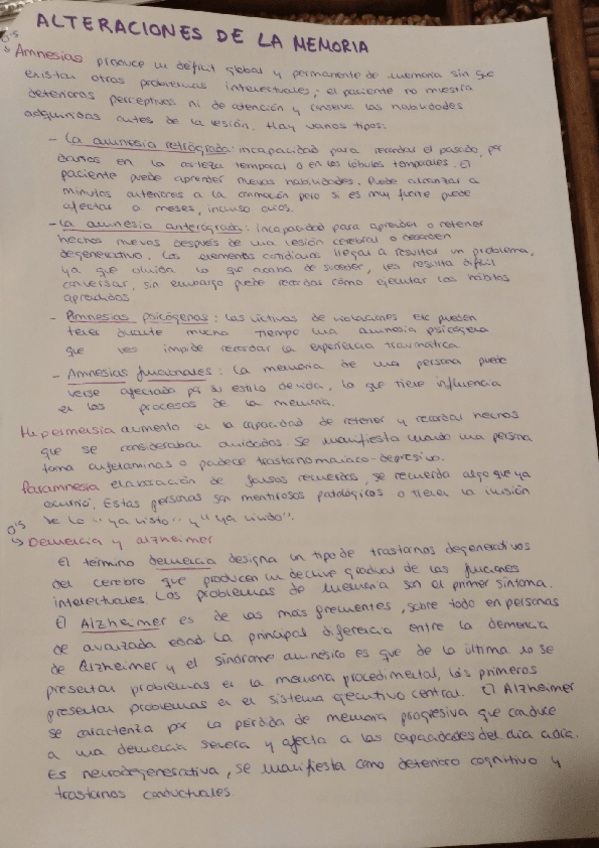 ALTERACIONES DE LA MEMORIA
0'5
Amnesias produce un déficit global y permanente de memoria sin que
existan otros problemas intelectuales; el paciente no muestra
deterioros perceptivos ni de atención y conserva las habilidades
adquiridas antes de la lesión. Hay varios tipos:
- La amnesia retrógrada: incapacidad para recordar el pasado, por
daños en la corteza temporal o en los lóbulos temporales. El
paciente puede aprender nuevas habilidades. Puede alcanzar a
minutos anteriores a la conmoción pero si es muy fuerte puede
afectar a meses, incluso años.
- La amnesia anterógrada: incapacidad para aprender o retener
hechos nuevos después de una lesión cerebral o desorden
degenerativo. Los elementos cotidianos llegan a resultar un problema,
ya que olvida lo que acaba de suceder, les resulta difícil
conversar, sin embargo puede recordar cómo ejecutar los hábitos
aprendidos
- Amnesias psicógenas: Las víctimas de violaciones etc pueden
tener durante mucho tiempo una amnesia psicógena
que les impide recordar la experiencia traumática
- Amnesias funcionales: La memoria de una persona puede
verse afectada por su estilo de vida, lo que tiene influencia
en los procesos de la memoria.
Hipermnesia aumento en la capacidad de retener y recordar hechos
que se consideraban olvidados. Se manifiesta cuando una persona
toma anfetaminas o padece trastorno maníaco-depresivo.
Paramnesia elaboración de falsos recuerdos, se recuerda algo que ya
ocurrió, Estas personas son mentirosos patológicos o tienen la ilusión
de lo "ya visto" y "ya vivido".
0'5
Demencia y alzheimer
El término demencia designa un tipo de trastornos degenerativos
del cerebro que producen un declive gradual de las funciones
intelectuales. Los problemas de memoria son el primer síntoma.
El Alzheimer es de las más frecuentes, sobre todo en personas
de avanzada edad. La principal diferencia entre la demencia
de Alzheimer y el síndrome amnésico es que de la última no se
presentan problemas en la memoria procedimental, los primeros
presentan problemas en el sistema ejecutivo central. El Alzheimer
se caracteriza por la pérdida de memoria progresiva que conduce
a una demencia severa y afecta a las capacidades del día a día.
Es neurodegenerativa, se manifiesta como deterioro cognitivo y
trastornos conductuales.